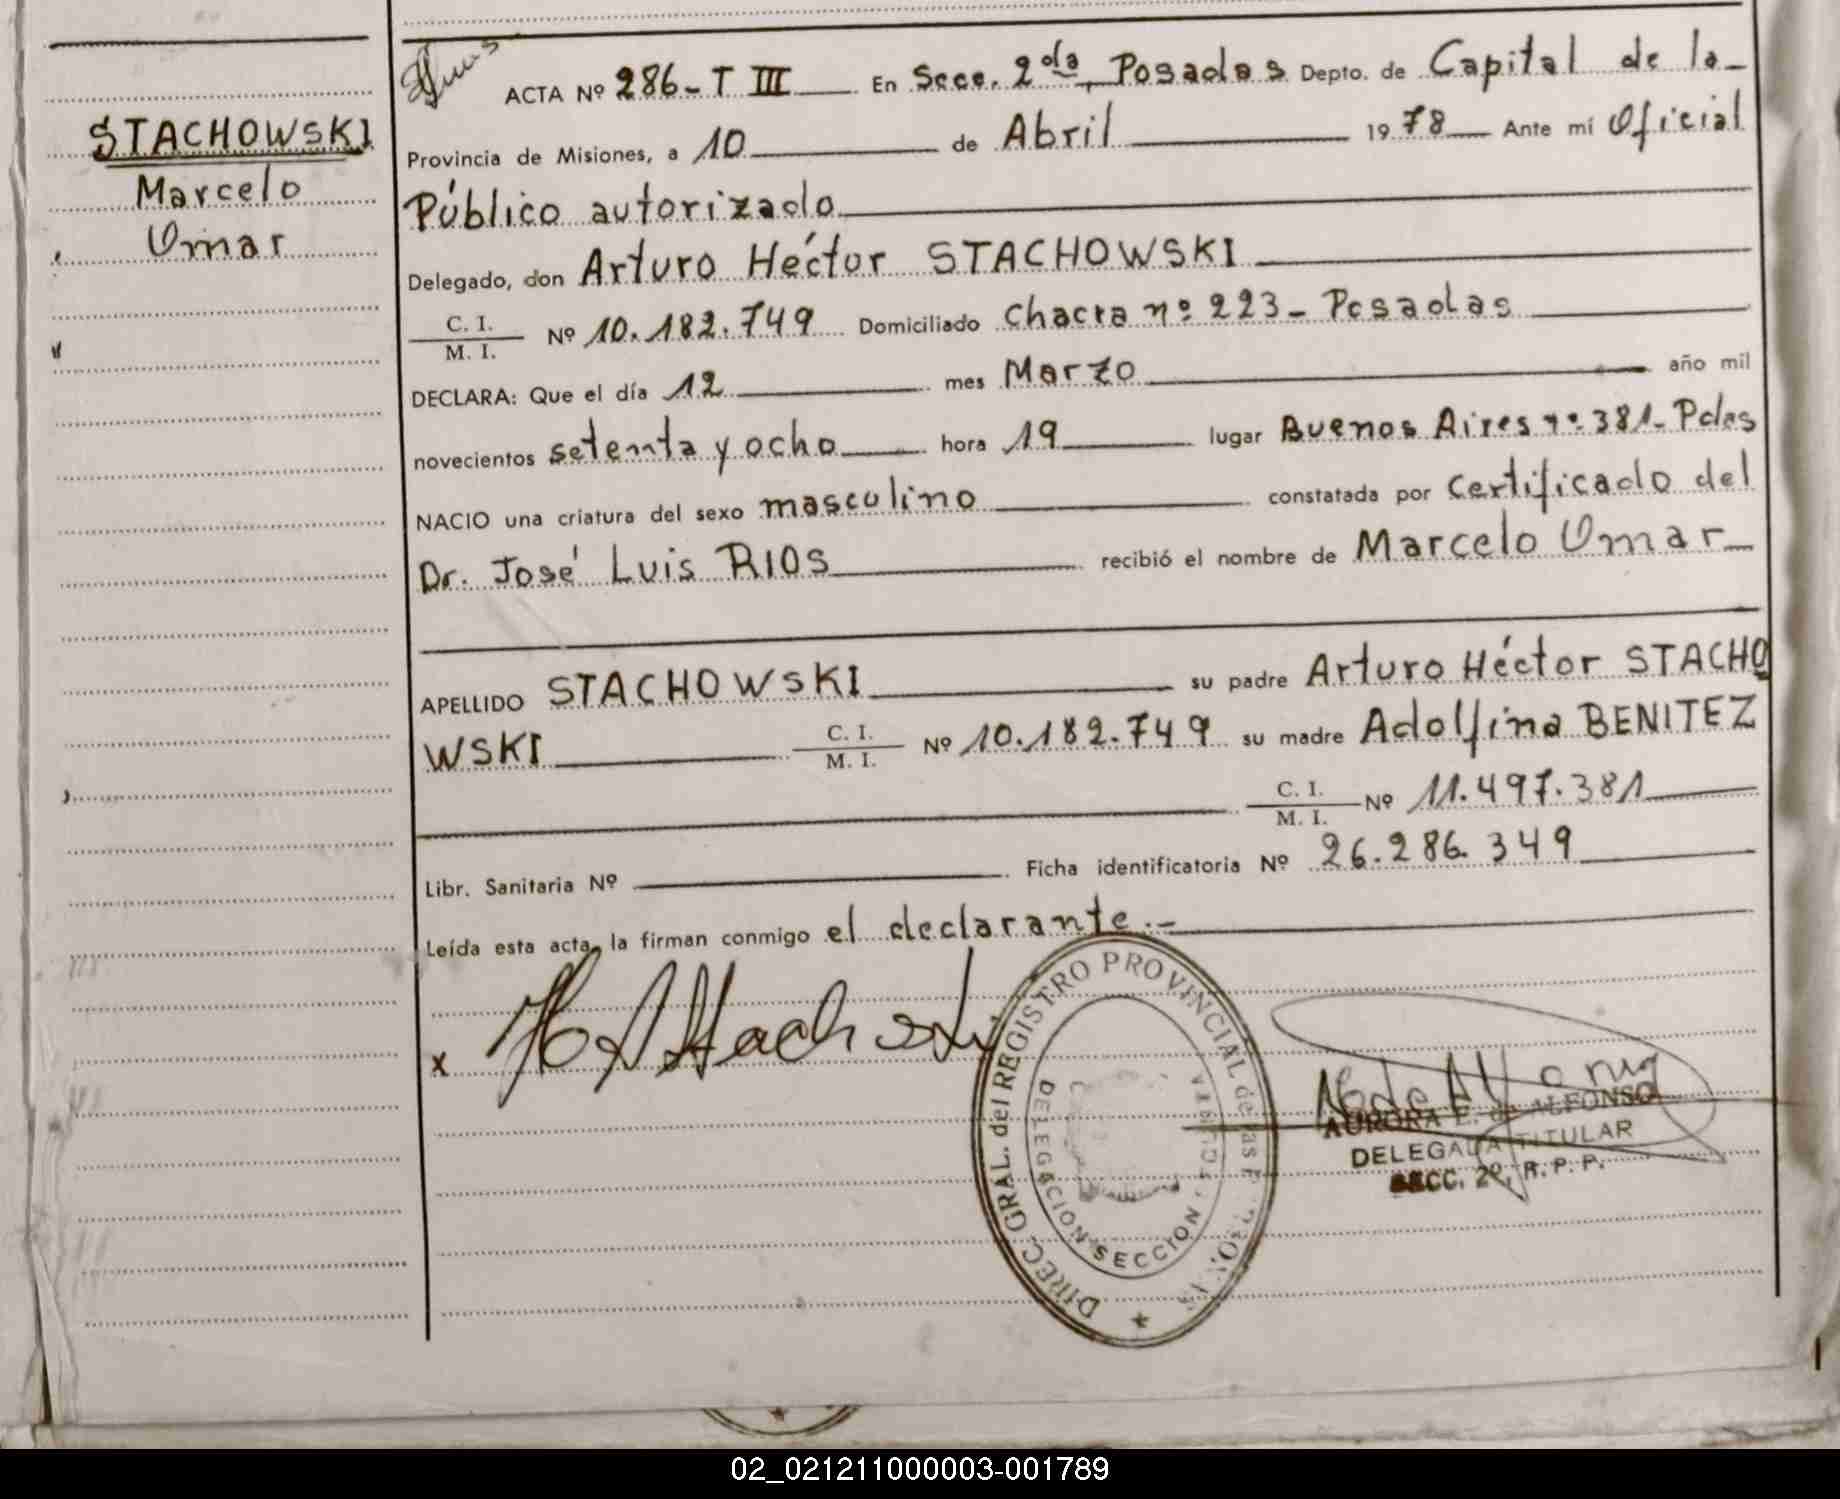 STACHOWSKI
Marcelo
Omar
ACTA Nº 286-T III En Secc. 2da, Posadas Depto. de Capital de la
Provincia de Misiones, a 10 de Abril 1978 Ante mí Oficial
Público autorizado
Delegado, don Arturo Héctor STACHOWSKI
C. I.
M. I. Nº 10.182.749 Domiciliado Chacra nº 223- Posadas
DECLARA: Que el día 12 mes Marzo año mil
novecientos setenta y ocho hora 19 lugar Buenos Aires nº 381- Pdas
NACIO una criatura del sexo masculino constatada por Certificado del
Dr. José Luis RIOS recibió el nombre de Marcelo Omar
APELLIDO STACHOWSKI su padre Arturo Héctor STACHO
WSKI C. I.
M. I. Nº 10.182.749 su madre Adolfina BENITEZ
C. I.
M. I. Nº 11.497.381
Libr. Sanitaria Nº Ficha identificatoria Nº 26.286.349
Leída esta acta, la firman conmigo el declarante.-
x
DIREC. GRAL. del REGISTRO PROVINCIAL de las
DELEGACION SECCION
AURORA E. de ALFONSO
DELEGADA TITULAR
SECC. 2º, R. P. P.
02_021211000003-001789